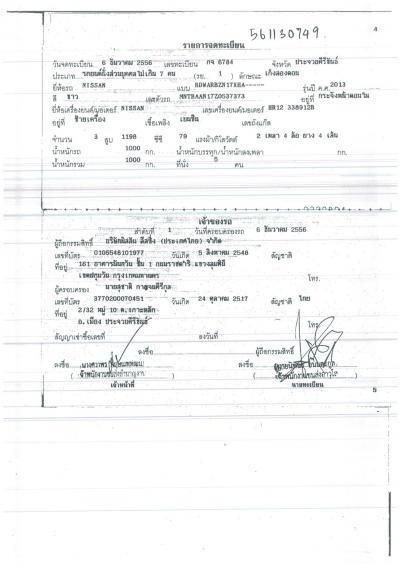 561130749.
4
รายการจดทะเบียน
วันจดทะเบียน 6 ธันวาคม 2556 เลขทะเบียน กจ 6784 จังหวัด ประจวบคีรีขันธ์
ประเภท รถยนต์นั่งส่วนบุคคลไม่เกิน 7 คน (รย. 1 ) ลักษณะ เก๋งสองตอน
ยี่ห้อรถ NISSAN แบบ รุ่นปี ค.ศ. 2013
สี ขาว เลขตัวรถ MNTBAAN17Z0037373 อยู่ที่
ยี่ห้อเครื่องยนต์/มอเตอร์ NISSAN เลขเครื่องยนต์/มอเตอร์ HR12 338912B
อยู่ที่ ซ้ายเครื่อง เชื้อเพลิง เบนซิน เลขถังแก๊ส
จำนวน 3 สูบ 1198 ซีซี 79 แรงม้า/กิโลวัตต์ 2 เพลา 4 ล้อ ยาง 4 เส้น
น้ำหนักรถ 1000 กก. น้ำหนักบรรทุก/น้ำหนักลงเพลา กก.
น้ำหนักรวม 1000 กก. ที่นั่ง 5 คน
เจ้าของรถ
ลำดับที่ 1 วันที่ครอบครองรถ 6 ธันวาคม 2556
ผู้ถือกรรมสิทธิ์ บริษัทนิสสัน ลีสซิ่ง (ประเทศไทย) จำกัด
เลขที่บัตร 0105548101977 วันเกิด 5 สิงหาคม 2548 สัญชาติ
ที่อยู่ 161 อาคารนันทวัน ชั้น 1 ถนนราชดำริ แขวงลุมพินี
เขตปทุมวัน กรุงเทพมหานคร โทร.
ผู้ครอบครอง นายสุชาติ
เลขที่บัตร 3770200070451 วันเกิด 24 ตุลาคม 2517 สัญชาติ ไทย
ที่อยู่ 2/32 หมู่ 10 ต.เกาะหลัก
อ.เมือง ประจวบคีรีขันธ์ โทร
สัญญาเช่าซื้อเลขที่ ลงวันที่
ลงชื่อ ผู้ถือกรรมสิทธิ์
ลงชื่อ ลงชื่อ
เจ้าหน้าที่ นายทะเบียน
5